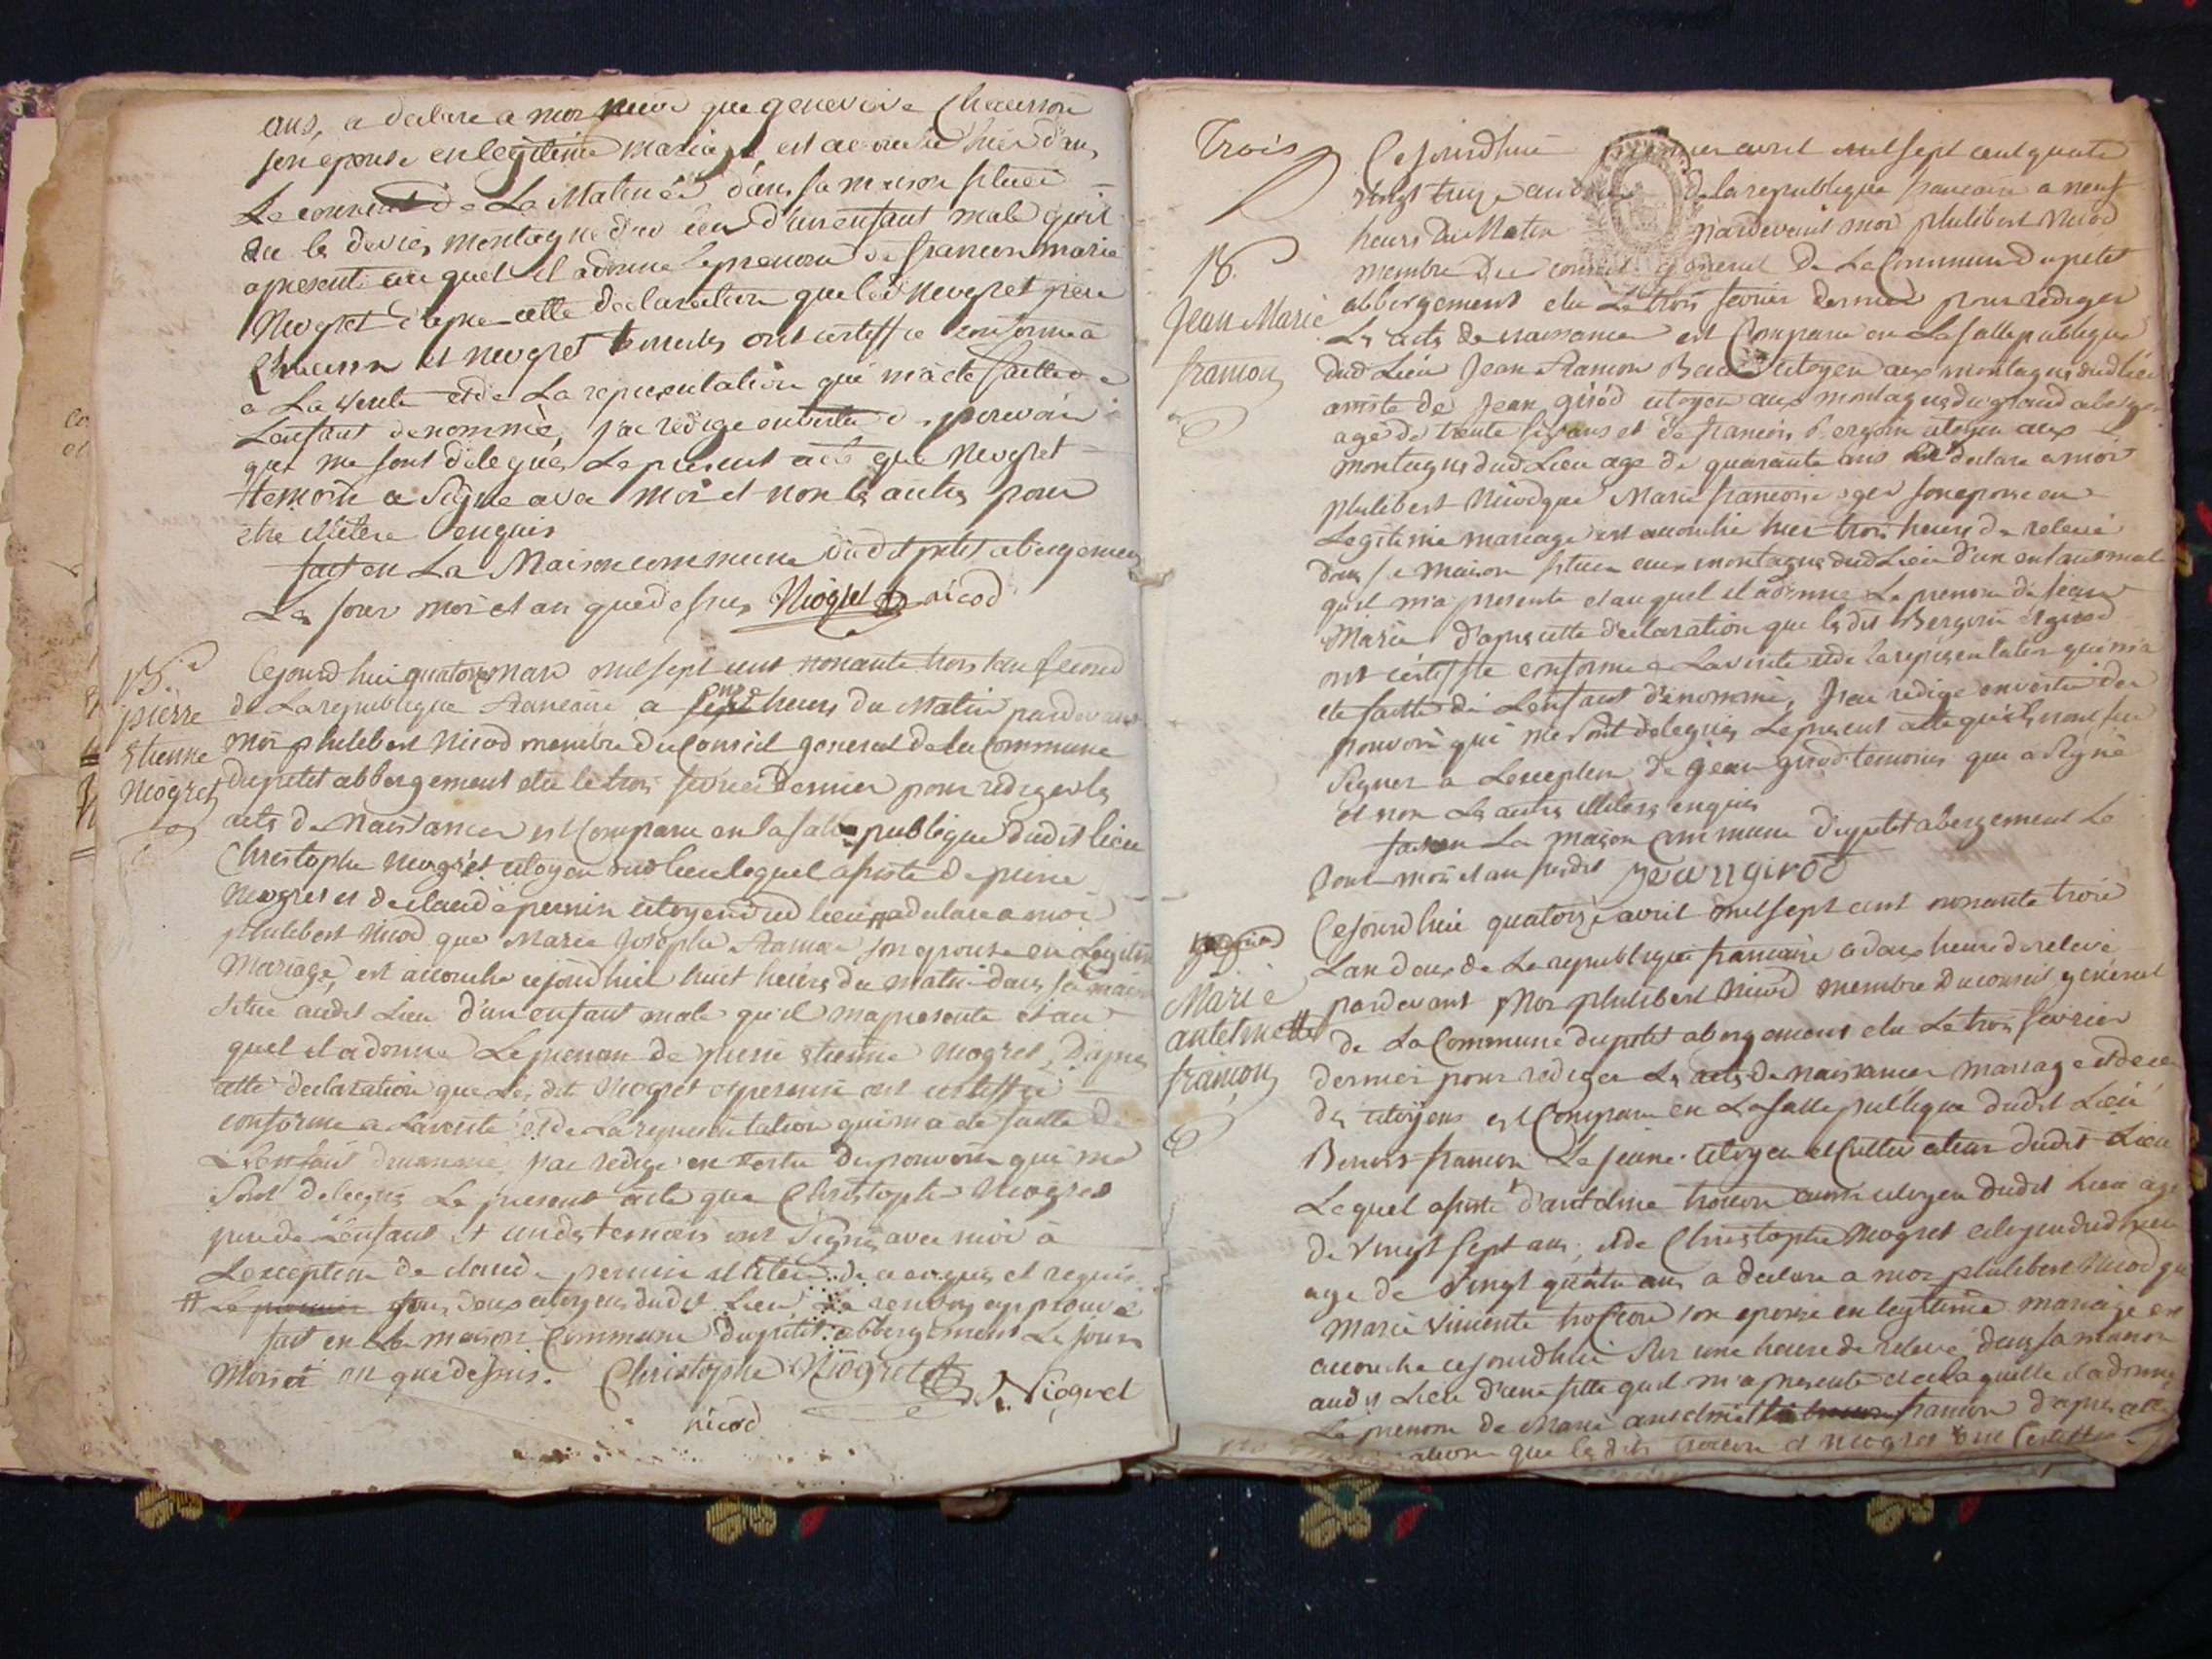 ans, a declare a moi que genevieve Chauesson
son epouse en legitime mariage est accouché hier dans
Le courent de La Matinée dans sa maison située
sur les derrier montagne dud lieu d'un enfant male qu'il
a presenté auquel il a donne le prenom de francois marie
Neogret d'apres cette declaration que led Neogret pere
et neogret temoins ont certiffie conforme a
a La verité et de La representation qui m'a eté faitte de
L'enfant denommé, j'ai redigé en vertu des pouvoirs
qui me sont delegués Le present acte que Neogret
temoin a signé avec moi et non les autres pour
etre illitere enquis
fait en La Maison commune dudit petit abergement
Les jour mois et an que dessus Niogret nicod
15.
pierre
Etienne
Niogret
Cejourd'hui quatorze mars mil sept cent nonante trois l'an second
de La republique francaise a heures du Matin pardevant
Moi philibert Nicod membre du Conseil general de la Commune
du petit abbergement elu le trois fevrier dernier pour rediger les
acts de Naissances est Comparu en la salle publique dudit lieu
Christophe Niogret citoyen dud lieu lequel assisté de pierre
Niogret et de claude perrin citoyen dud lieu # a declare a moi
philibert Nicod que Marie Josephe francon son epouse en Legitime
Mariage, est accouche cejourd'hui huit heures du matin dans sa maison
situe audit Lieu d'un enfant male qu'il m'a presenté et au
quel il a donne Le prenom de pierre etienne Niogret, D'apres
cette declaration que Les dits Niogret et perrin ont certiffie
conforme a La verité et de La representation qui m'a eté faitte de
L'enfant denommé, j'ai redigé en vertu des pouvoirs qui me
sont delegués Le present acte que Christophe Niogret
pere de L'enfant et un des temoins ont signés avec moi à
L'exception de claude perrin illitere de ce enquis et requis
# Le premier tous deux citoyens dudit Lieu Le renvoy approuvé
fait en La maison Commune du petit abbergement Le jour
Mois et an que dessus. Christophe Niogret Niogret
nicod
Trois
16.
Jean Marie
francon
Cejourdhui premier avril mil sept cent quatre
vingt treize an de la republique francaise a neuf
heurs du Matin pardevant moi philibert Nicod
membre du conseil general de La Commune du petit
abbergement elu Le trois fevrier dernier pour rediger
Les acts de naissances est Comparu en La salle publique
dud Lieu Jean francon citoyen aux montagnes dud lieu
assisté de Jean girod citoyen aux montagnes du grand aberge
agé de trente six ans et de francois Bergoin citoyen aux
montagnes dud Lieu agé de quarante ans a declare a moi
philibert Nicod que Marie francoise son epouse en
Legitime mariage est accouchie hier trois heures de relevé
dans sa maison situé aux montagnes dud Lieu d'un enfant mal
qu'il m'a presenté et auquel il a donne Le prenom de jean
Marie. d'apres cette declaration que les dit Bergoin et girod
ont certiffié conforme a La verité et de la representation qui m'a
eté faitte de L'enfant denommé, J'ai redigé en vertu des
pouvoirs qui me sont delegués Le present acte qu'ils n'ont seu
signer a L'exception de jean girod temoins qui a signé
et non Les autres illiters enquis
fait en La maison Commune du petit abergement Le
Jour mois et an susdit jeangirod
Marie
antelmette
francon
Cejourdhui quatorze avril mil sept cent nonante trois
L'an deux de La republique francaise a deux heure de relevé
pardevant Moi philibert Nicod membre du conseil general
de La Commune du petit abergement elu Le trois fevrier
dernier pour rediger Les acts de naissances mariage et deces
des citoyens est Comparu en La salle publique dudit Lieu
Benoit francon Le jeune citoyen et Cultivateur dudit Lieu
Lequel assisté d'antelme citoyen dudit Lieu agé
de vingt sept ans, et de Christophe Niogret citoyen dud lieu
agé de vingt quatre ans a declare a moi philibert Nicod que
Marie vincente son epouse en legitime mariage est
accouche cejourdhui sur une heure de relevé dans sa maison
audit Lieu d'une fille qu'il m'a presenté et a laquelle il a donné
Le prenom de Marie antelmette francon d'apres cette
que les dits et niogret ont certiffie